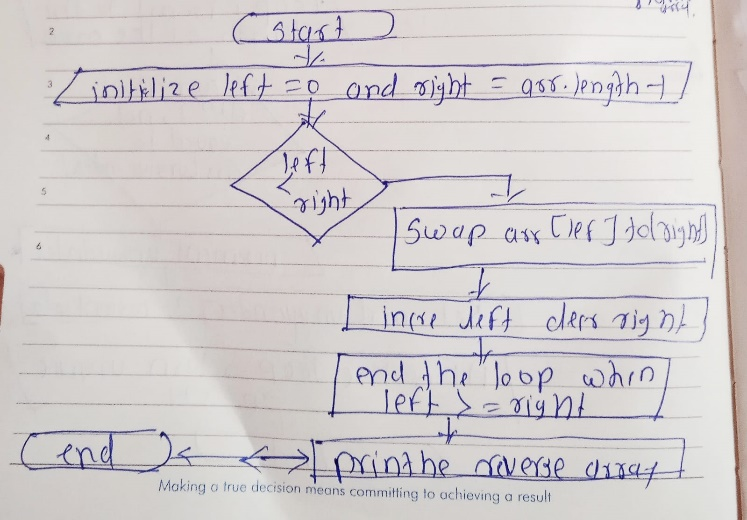 2
start
3
initilize left =0 and right = arr.length-1
4
left
<
right
5
swap arr [lef] to[right]
6
incre left decr right
end the loop when
left >= right
end
printhe reverse array
Making a true decision means committing to achieving a result